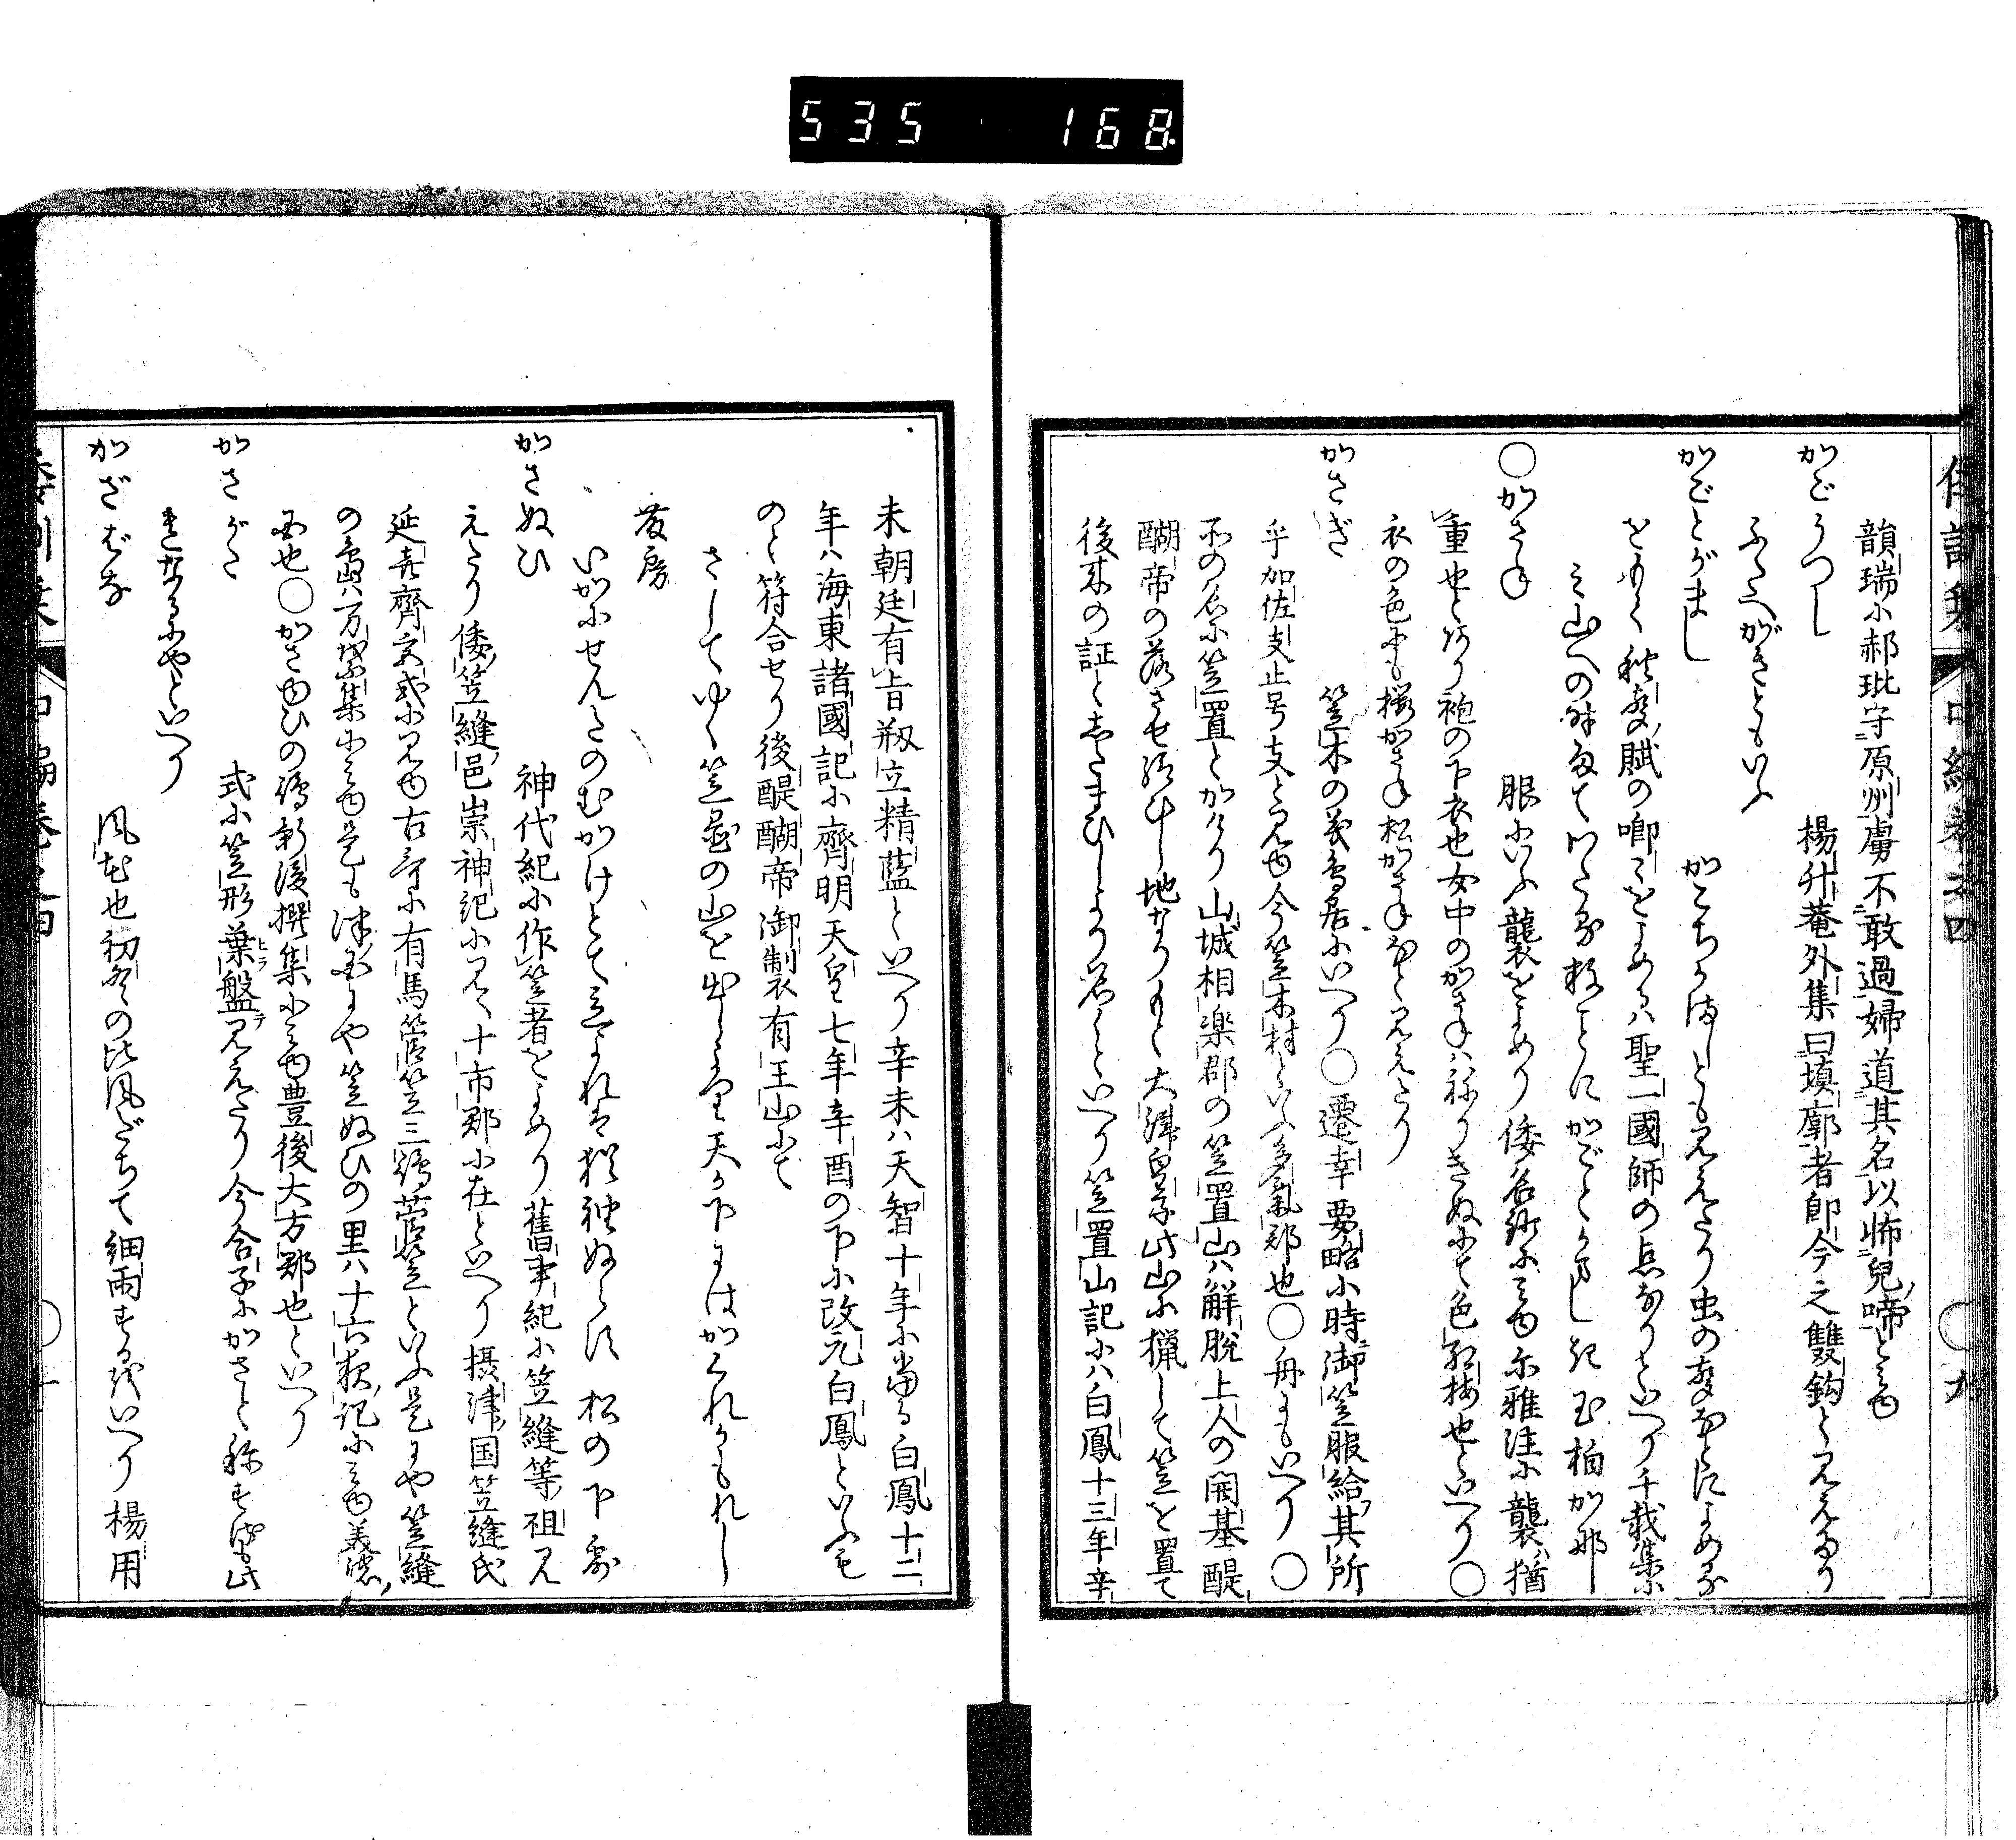 535 168
韻瑞に郝玭守原州虜不敢過婦道其名以怖兒啼とみゆ
かごうつし 楊升菴外集曰塡廓者即今之雙鉤と見えたり
ふたへがきともいふ
かごとがまし かこちかほしとも見えたり虫の聲などによめる
をもて秋聲賦の喞々をよめるは聖一國師の点なりといへり千載集に
み山への
かごとかましき玉柏かな
○かさね 服にいふ襲をよめり倭名鈔にみゆ尓雅注に襲猶
重也とあり袍の下衣也女中のかさねはねりきぬにて色紅梅也といへり○
衣の色にも櫻かさね松かさねなと見えたり
かさぎ 笠木の義鳥居にいへり○遷幸要略に時御笠服給其所
乎加佐支止号支と見ゆ今笠木村といふ多氣郡也○舟にもいへり○
所の名に笠置とかけり山城相楽郡の笠置山は解脱上人の開基醍
醐帝の落させ給ひし地なりもと大津皇子此山に猟して笠を置て
後来の証としたまひしより名くといへり笠置山記には白鳳十三年辛
未朝廷有旨剏立精藍といへり辛未は天智十年に當る白鳳十二
年は海東諸國記に齊明天皇七年辛酉の下に改元白鳳といふも
のと符合せり後醍醐帝御製衣有王山にて
さしてゆく笠置の山を出しより天か下にはかくれかもなし
藤房
いかにせんたのむかけとて立よれは猶袖ぬらす松の下露
かさぬひ 神代紀に作笠者をよめり舊事紀に笠縫等祖見
えたり倭笠縫邑崇神紀に見ゆ十市郡に在といへり摂津国笠縫氏
延喜齊宮式に見ゆ古哥に有馬菅笠三嶋菅笠といふ是にや笠縫
の嶋は万葉集にみゆ是も津国にや笠ぬひの里は十六夜記にみゆ美濃
国也○かさゆひの嶋新後撰集にみゆ豊後大方郡也といへり
かさがた 式に笠形葉盤ヒラデ見えたり今合子にかさと称するも此
まとなるにやといへり
かざばな 風花也初冬の比風だちて細雨するをいへり楊用